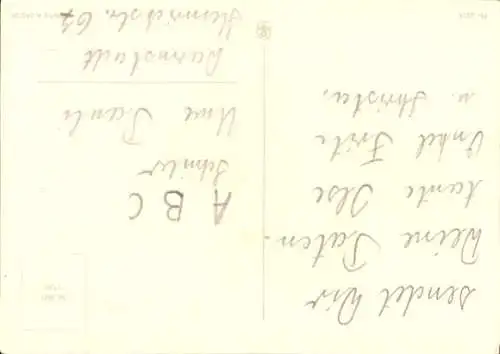 sendet Dir
Deine Paten.
Tante Ilse
Onkel Fritz
u. Christa.
A B C
Schüler
Uwe Pauli
Darmstadt
Heinrichstr. 67